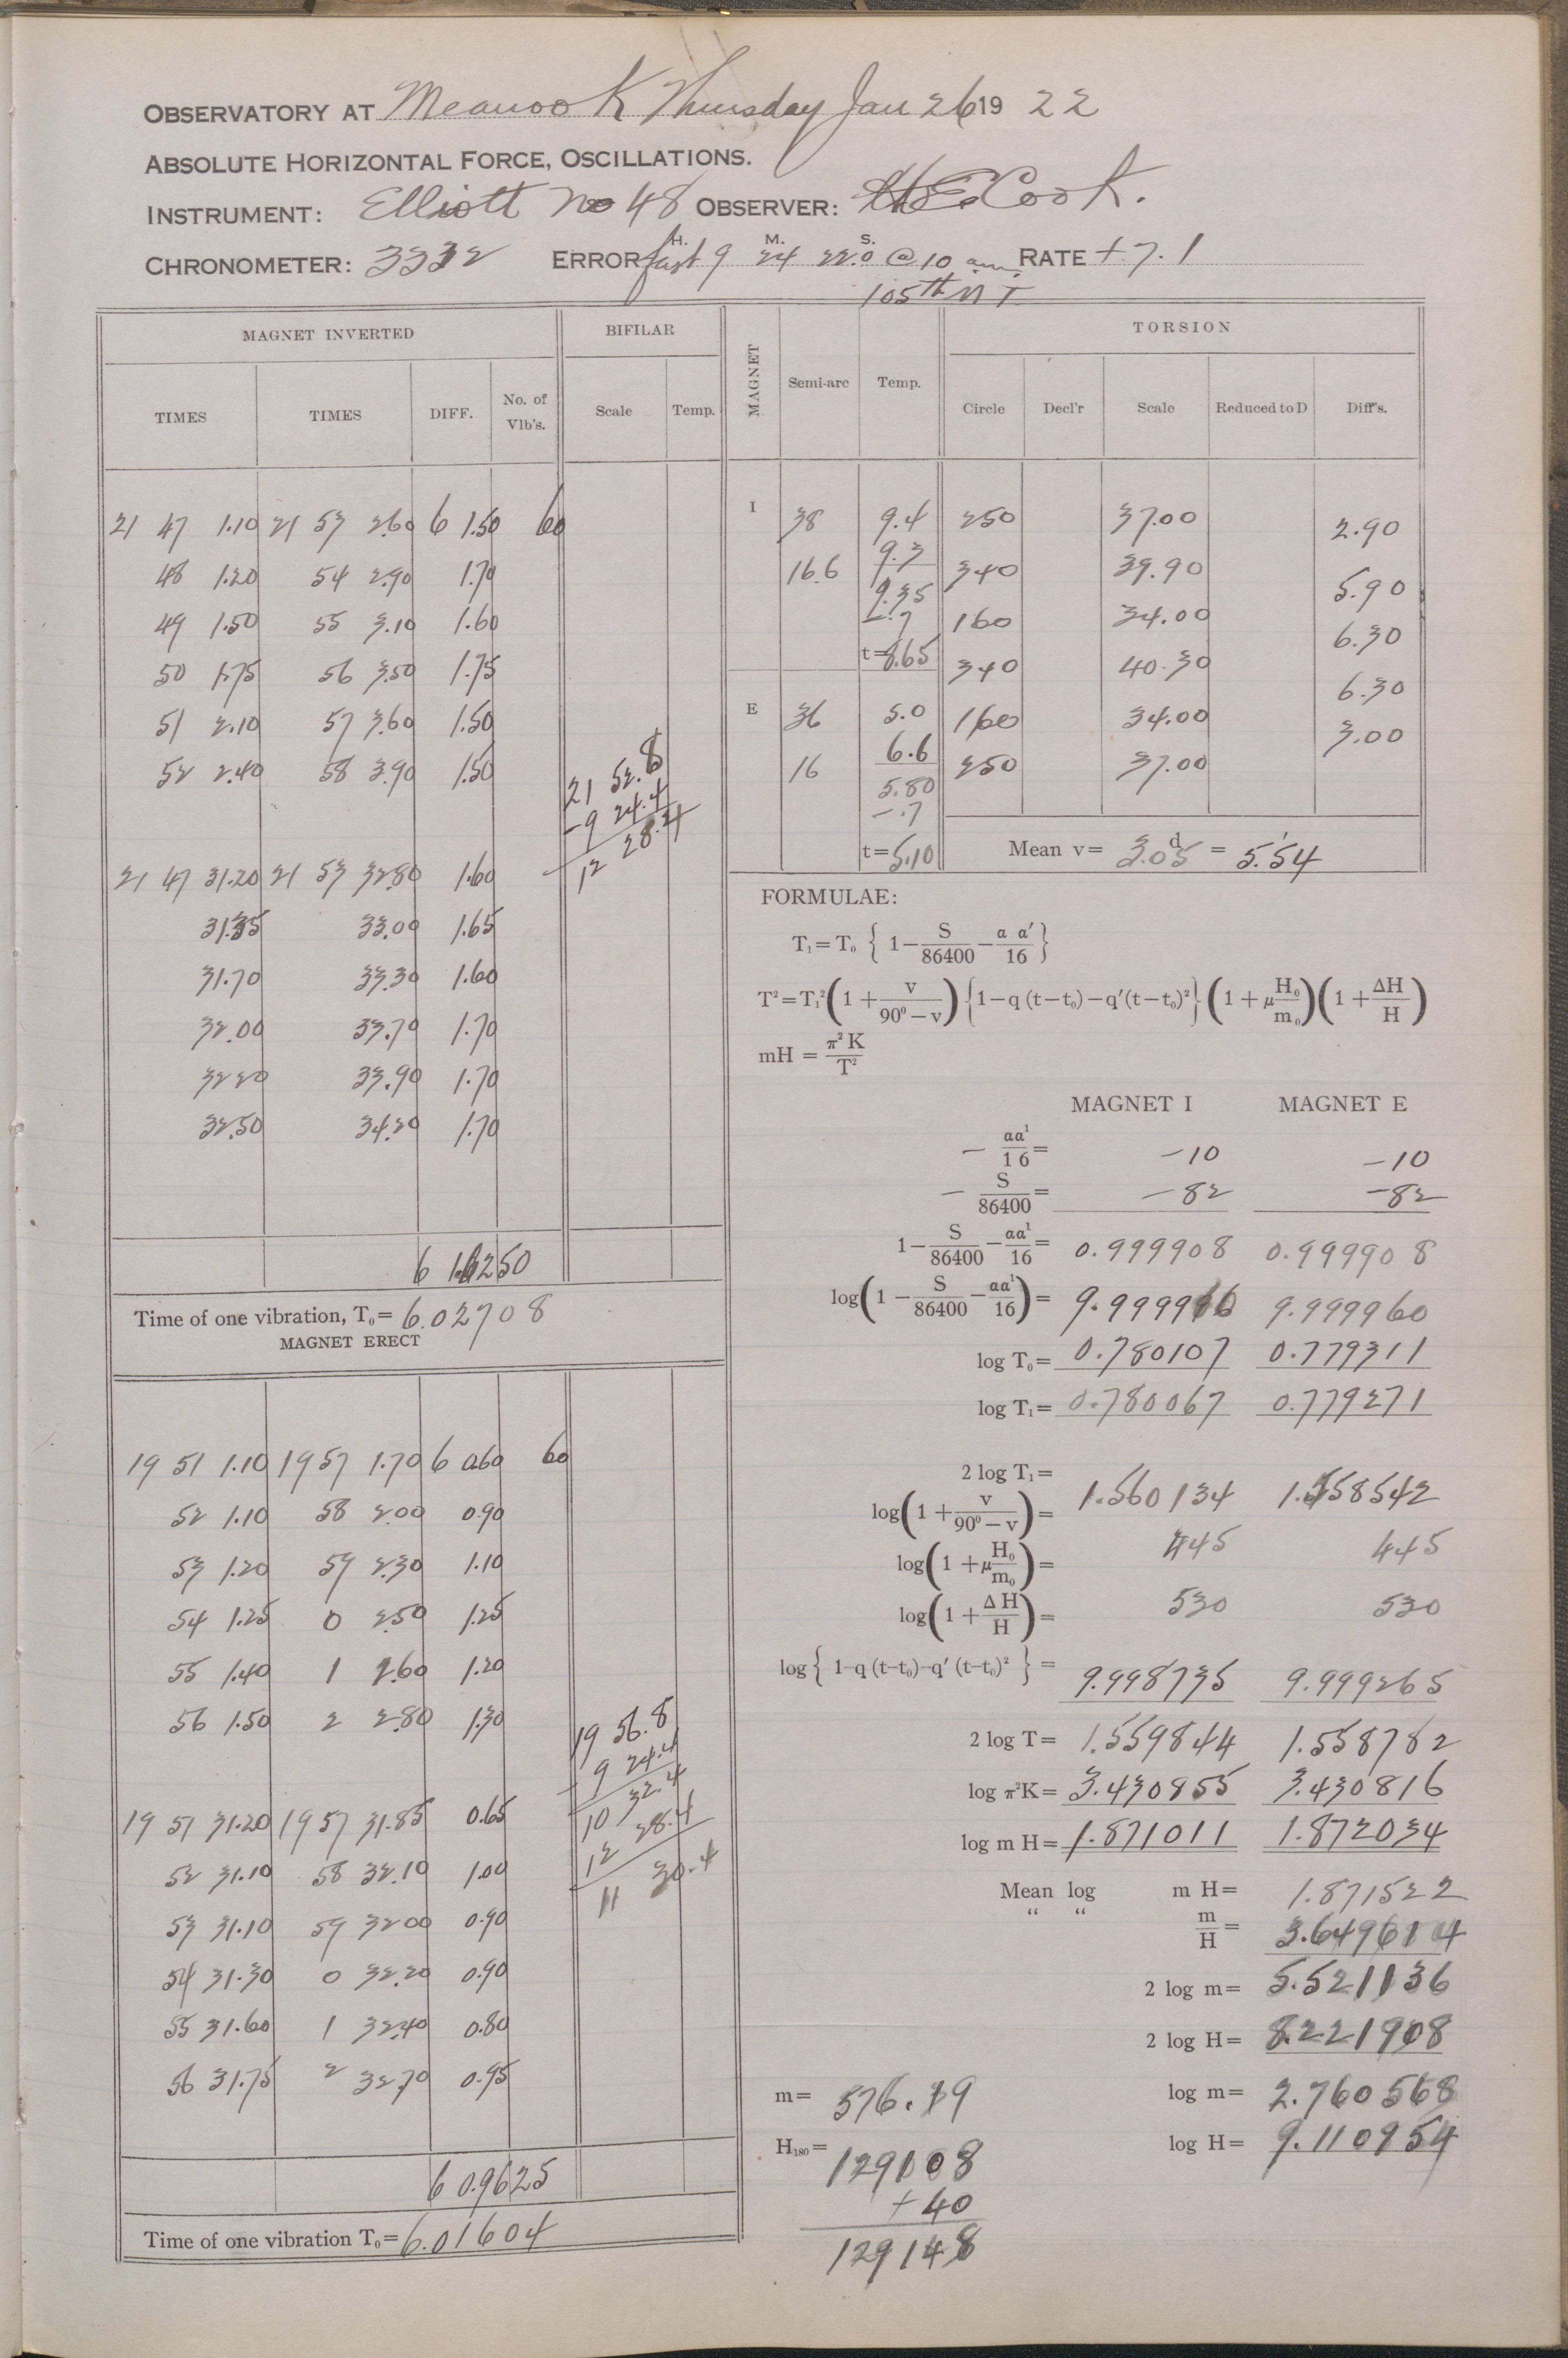 OBSERVATORY AT Meanook Thursday Jan 26 19 22
ABSOLUTE HORIZONTAL FORCE, OSCILLATIONS.
INSTRUMENT: Elliott No 48 OBSERVER: H E Cook.
CHRONOMETER: 3332 ERROR fast H. 9 M. 24 S. 22.0 @ 10 am. RATE +7.1
105th M T
MAGNET INVERTED
BIFILAR
TIMES TIMES DIFF. No. of Vib's. Scale Temp.
21 47 1.10 21 53 2.60 6 1.50 60
48 1.20 54 2.90 1.70
49 1.50 55 3.10 1.60
50 1.75 56 3.50 1.75
51 2.10 57 3.60 1.50
52 2.40 58 3.90 1.50
21 52.8
-9 24.4
12 28.4
21 47 31.20 21 53 32.80 1.60
31.35 33.00 1.65
31.70 33.30 1.60
32.00 33.70 1.70
32.20 33.90 1.70
32.50 34.20 1.70
6 1.6250
Time of one vibration, T₀= 6.02708
MAGNET ERECT
19 51 1.10 19 57 1.70 6 0.60 60
52 1.10 58 2.00 0.90
53 1.20 59 2.30 1.10
54 1.25 0 2.50 1.25
55 1.40 1 2.60 1.20
56 1.50 2 2.80 1.30
19 56.8
-9 24.4
10 32.4
12 28.4
11 30.4
19 51 31.20 19 57 31.85 0.65
52 31.10 58 32.10 1.00
53 31.10 59 32.00 0.90
54 31.30 0 32.20 0.90
55 31.60 1 32.40 0.80
56 31.75 2 32.70 0.95
6 0.9625
Time of one vibration T₀= 6.01604
MAGNET Semi-arc Temp.
TORSION
Circle Decl'r Scale Reduced to D Diff's.
I 38 9.4 250 37.00 2.90
16.6 9.3 340 39.90 5.90
9.35
-.7 160 34.00 6.30
t= 8.65 340 40.30 6.30
E 36 5.0 160 34.00 3.00
16 6.6 250 37.00
5.80
-.7
t= 5.10
Mean v= 3.05 d = 5.'54
FORMULAE:
T₁=T₀ { 1 − S/86400 − a a′/16 }
T²=T₁² (1 + v/90⁰−v) {1−q (t−t₀)−q′(t−t₀)²} (1 + μ H₀/m₀) (1 + ΔH/H)
mH = π² K/T²
MAGNET I MAGNET E
− aa¹/16 = −10 −10
− S/86400 = −82 −82
1 − S/86400 − aa¹/16 = 0.999908 0.999908
log(1 − S/86400 − aa¹/16) = 9.999960 9.999960
log T₀= 0.780107 0.779311
log T₁= 0.780067 0.779271
2 log T₁= 1.560134 1.558542
log(1 + v/90⁰−v) = 445 445
log(1 + μ H₀/m₀) = 530 530
log(1 + ΔH/H) =
log { 1−q (t−t₀)−q′ (t−t₀)² } = 9.998735 9.999265
2 log T= 1.559844 1.558782
log π²K= 3.430855 3.430816
log m H= 1.871011 1.872034
Mean log m H= 1.871522
“ “ m/H = 3.649614
2 log m= 5.521136
2 log H= 8.221908
m= 576.19 log m= 2.760568
H₁₈₀= 129108 log H= 9.110954
+40
129148